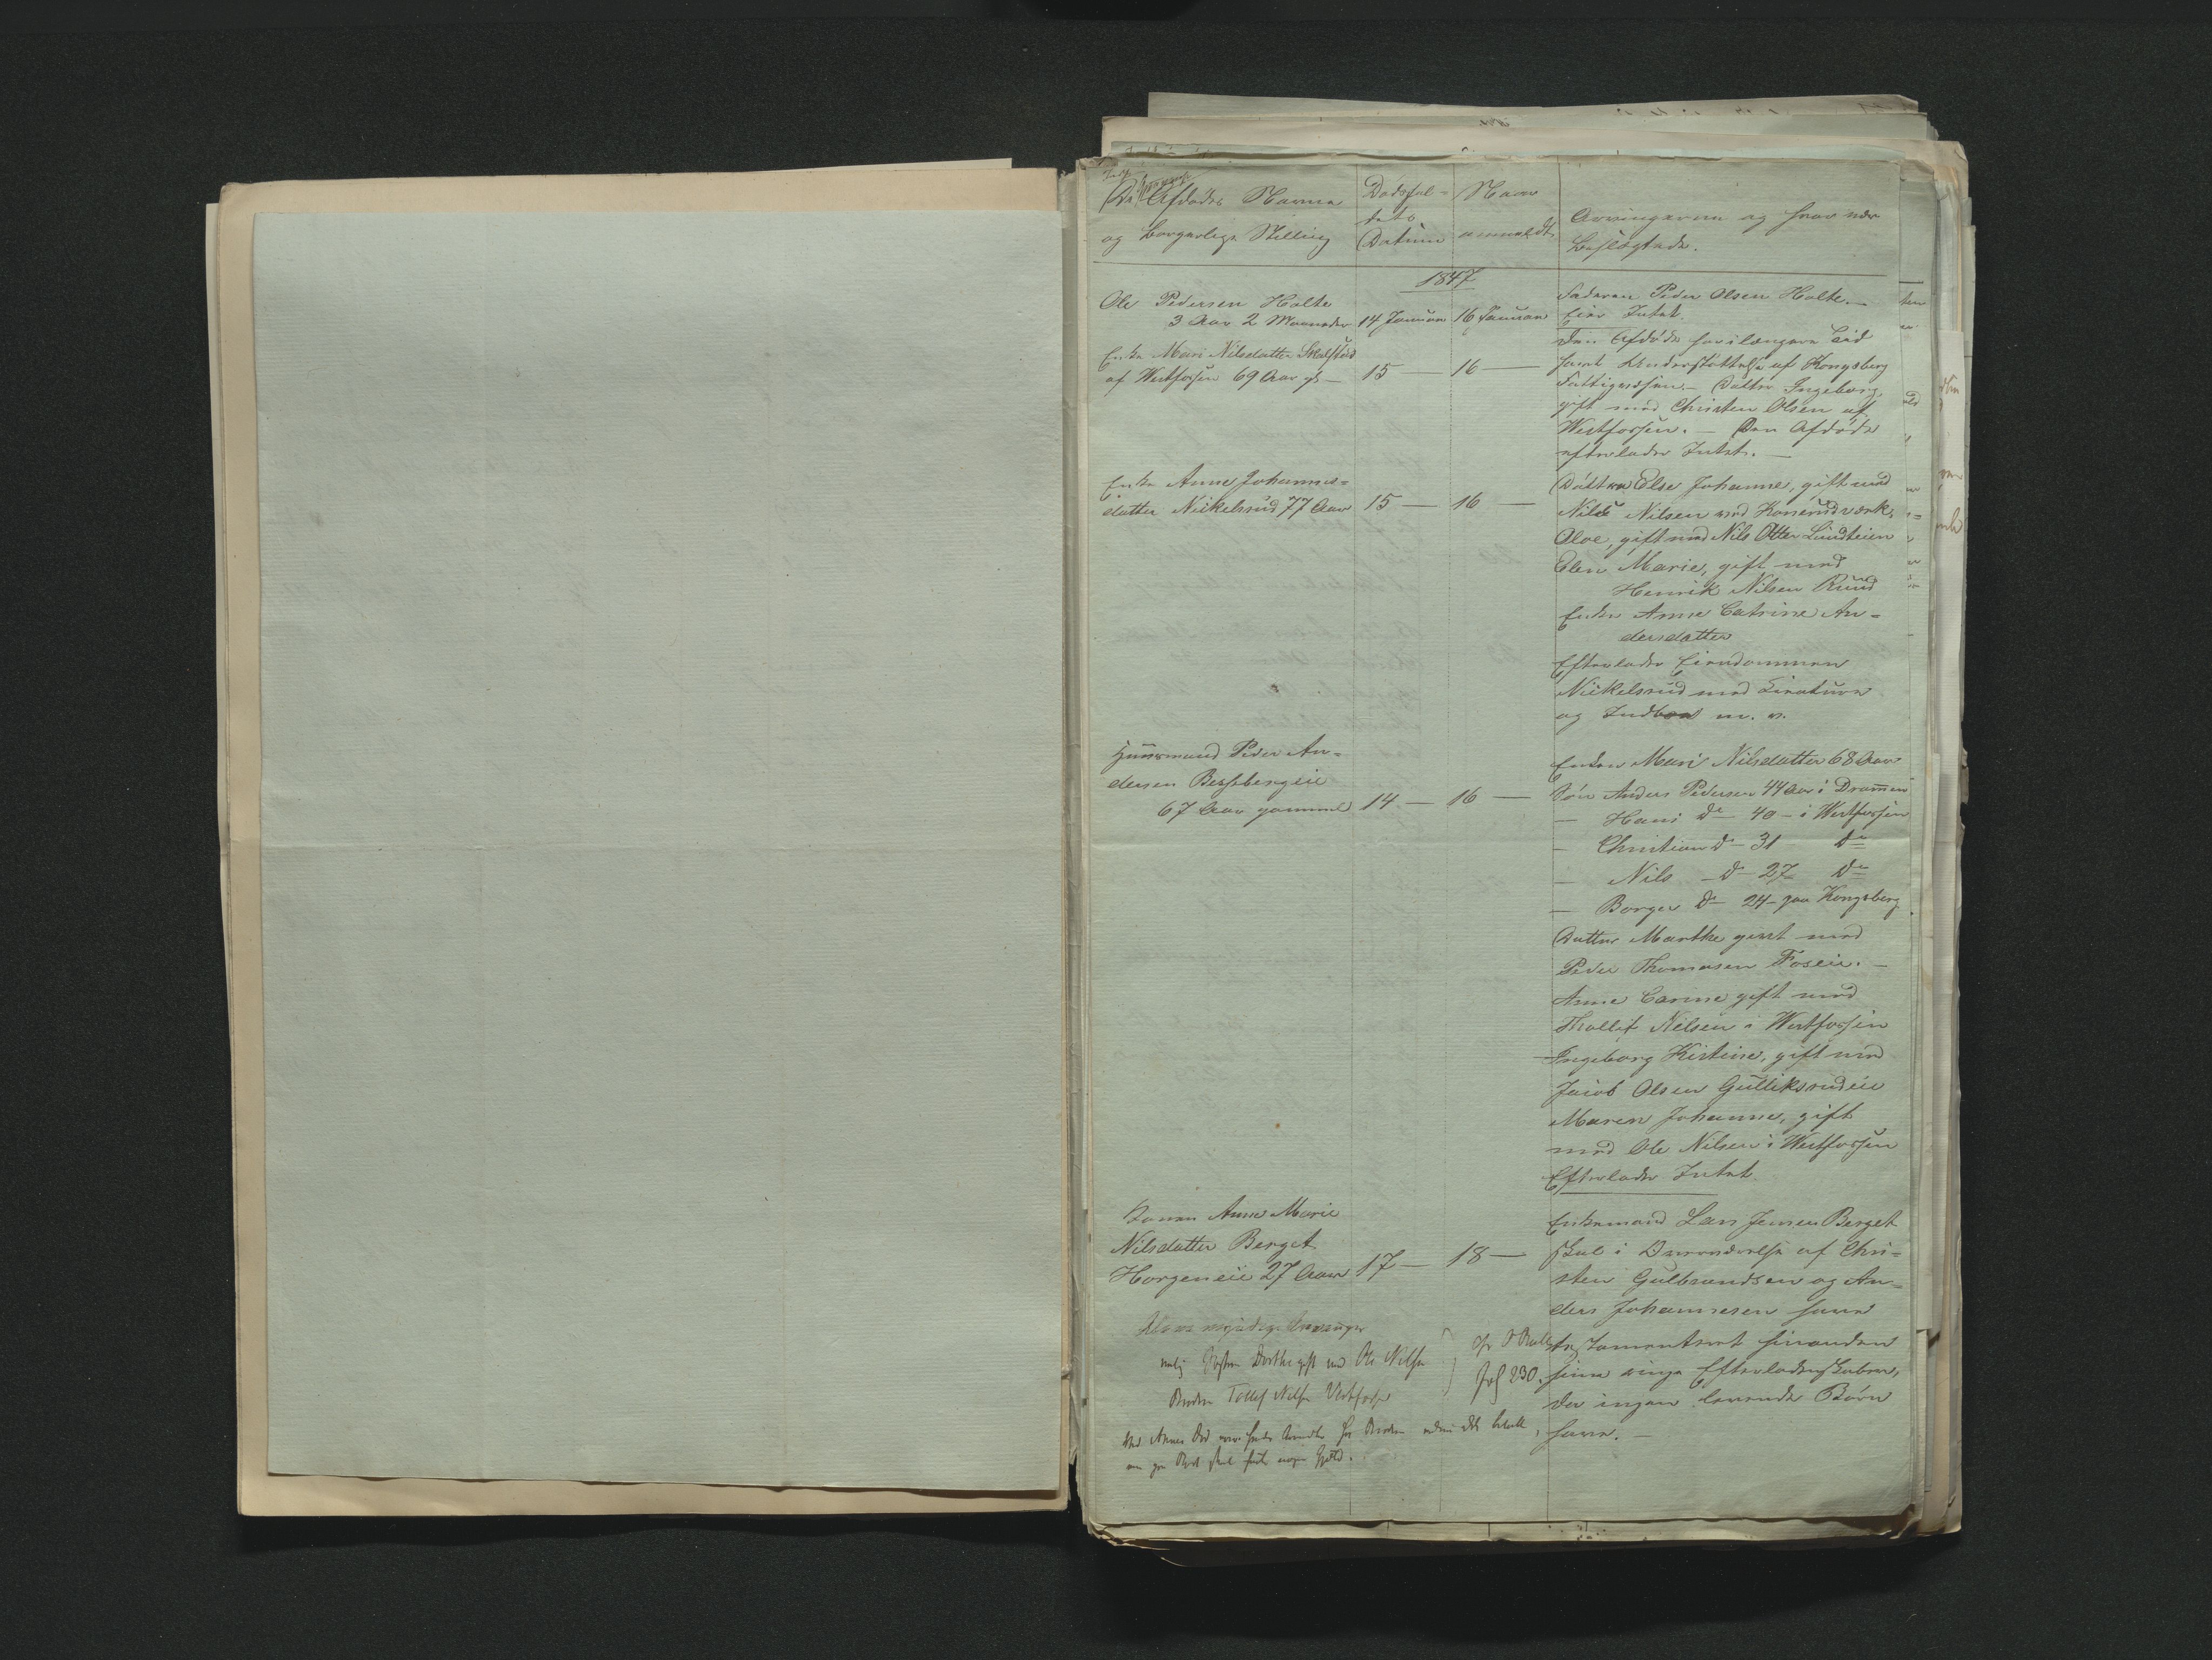 De Afdødes Navne
og borgerlige Stilling
Dødsfal=
dets
Datum
Naar
anmeldt
Arvingerne og hvor nær
beslægtede.
1847
Ole Pedersen Holte
3 Aar 2 Maaneder
14 Januar
16 Januar
Faderen Peder Olsen Holte.—
Eier Intet.
Enke Mari Nilsdatter
af Westfossen 69 Aar gl —
15 —
16 —
Den Afdøde har i længere Tid
havt Understøttelse af Kongsberg
Fattigvæsen.— Datter Ingeborg,
gift med Christen Olsen af
Westfossen. — Den Afdøde
efterlader Intet. —
Enke Anne Johannes=
datter Nickelsrud 77 Aar
15 —
16 —
Døttre Else Johanne, gift med
Nils Nilsen ved Konerudværk,
Oloe, gift med Nils Otter Lindteien
Elen Marie, gift med
Henrik Nilsen Ruud
Enke Anne Catrine An=
dersdatter
Efterlader Eiendommen
Nickelsrud med Creature
og Indboe m. v.
Huusmand Peder An=
dersen Bessebergeie
67 Aar gammel
14 —
16 —
Enken Mari Nilsdatter 68 Aar
Søn Anders Pedersen 44 Aar i Drammen
— Hans do 40 — i Westfossen
— Christian do 31 do
— Nils — do 27 do
— Borger do 24 — paa Kongsberg
Datter Marthe givt med
Peder Thomasen Foseie. —
Anne Carine gift med
Thollef Nilsen i Westfossen
Ingeborg Kirstine, gift med
Jacob Olsen Gulliksrudeie
Maren Johanne, gift
med Ole Nilsen i Westfossen
Efterlader Intet.
Konen Anne Marie
Nilsdatter Berget
Horgeneie 27 Aar
17 —
18 —
Enkemand Lars Jensen Berget
skal i Overværelse af Chri=
sten Gulbrandsen og An=
ders Johannesen have
testamenteret hinanden
sine ringe Efterladenskaber,
der ingen levende Børn
have. —
Arvinger
nemlig Søsteren Dorthe gift med Ole Nilsen
Broderen Tollef Nilsen Vestfossen
Fol 230.